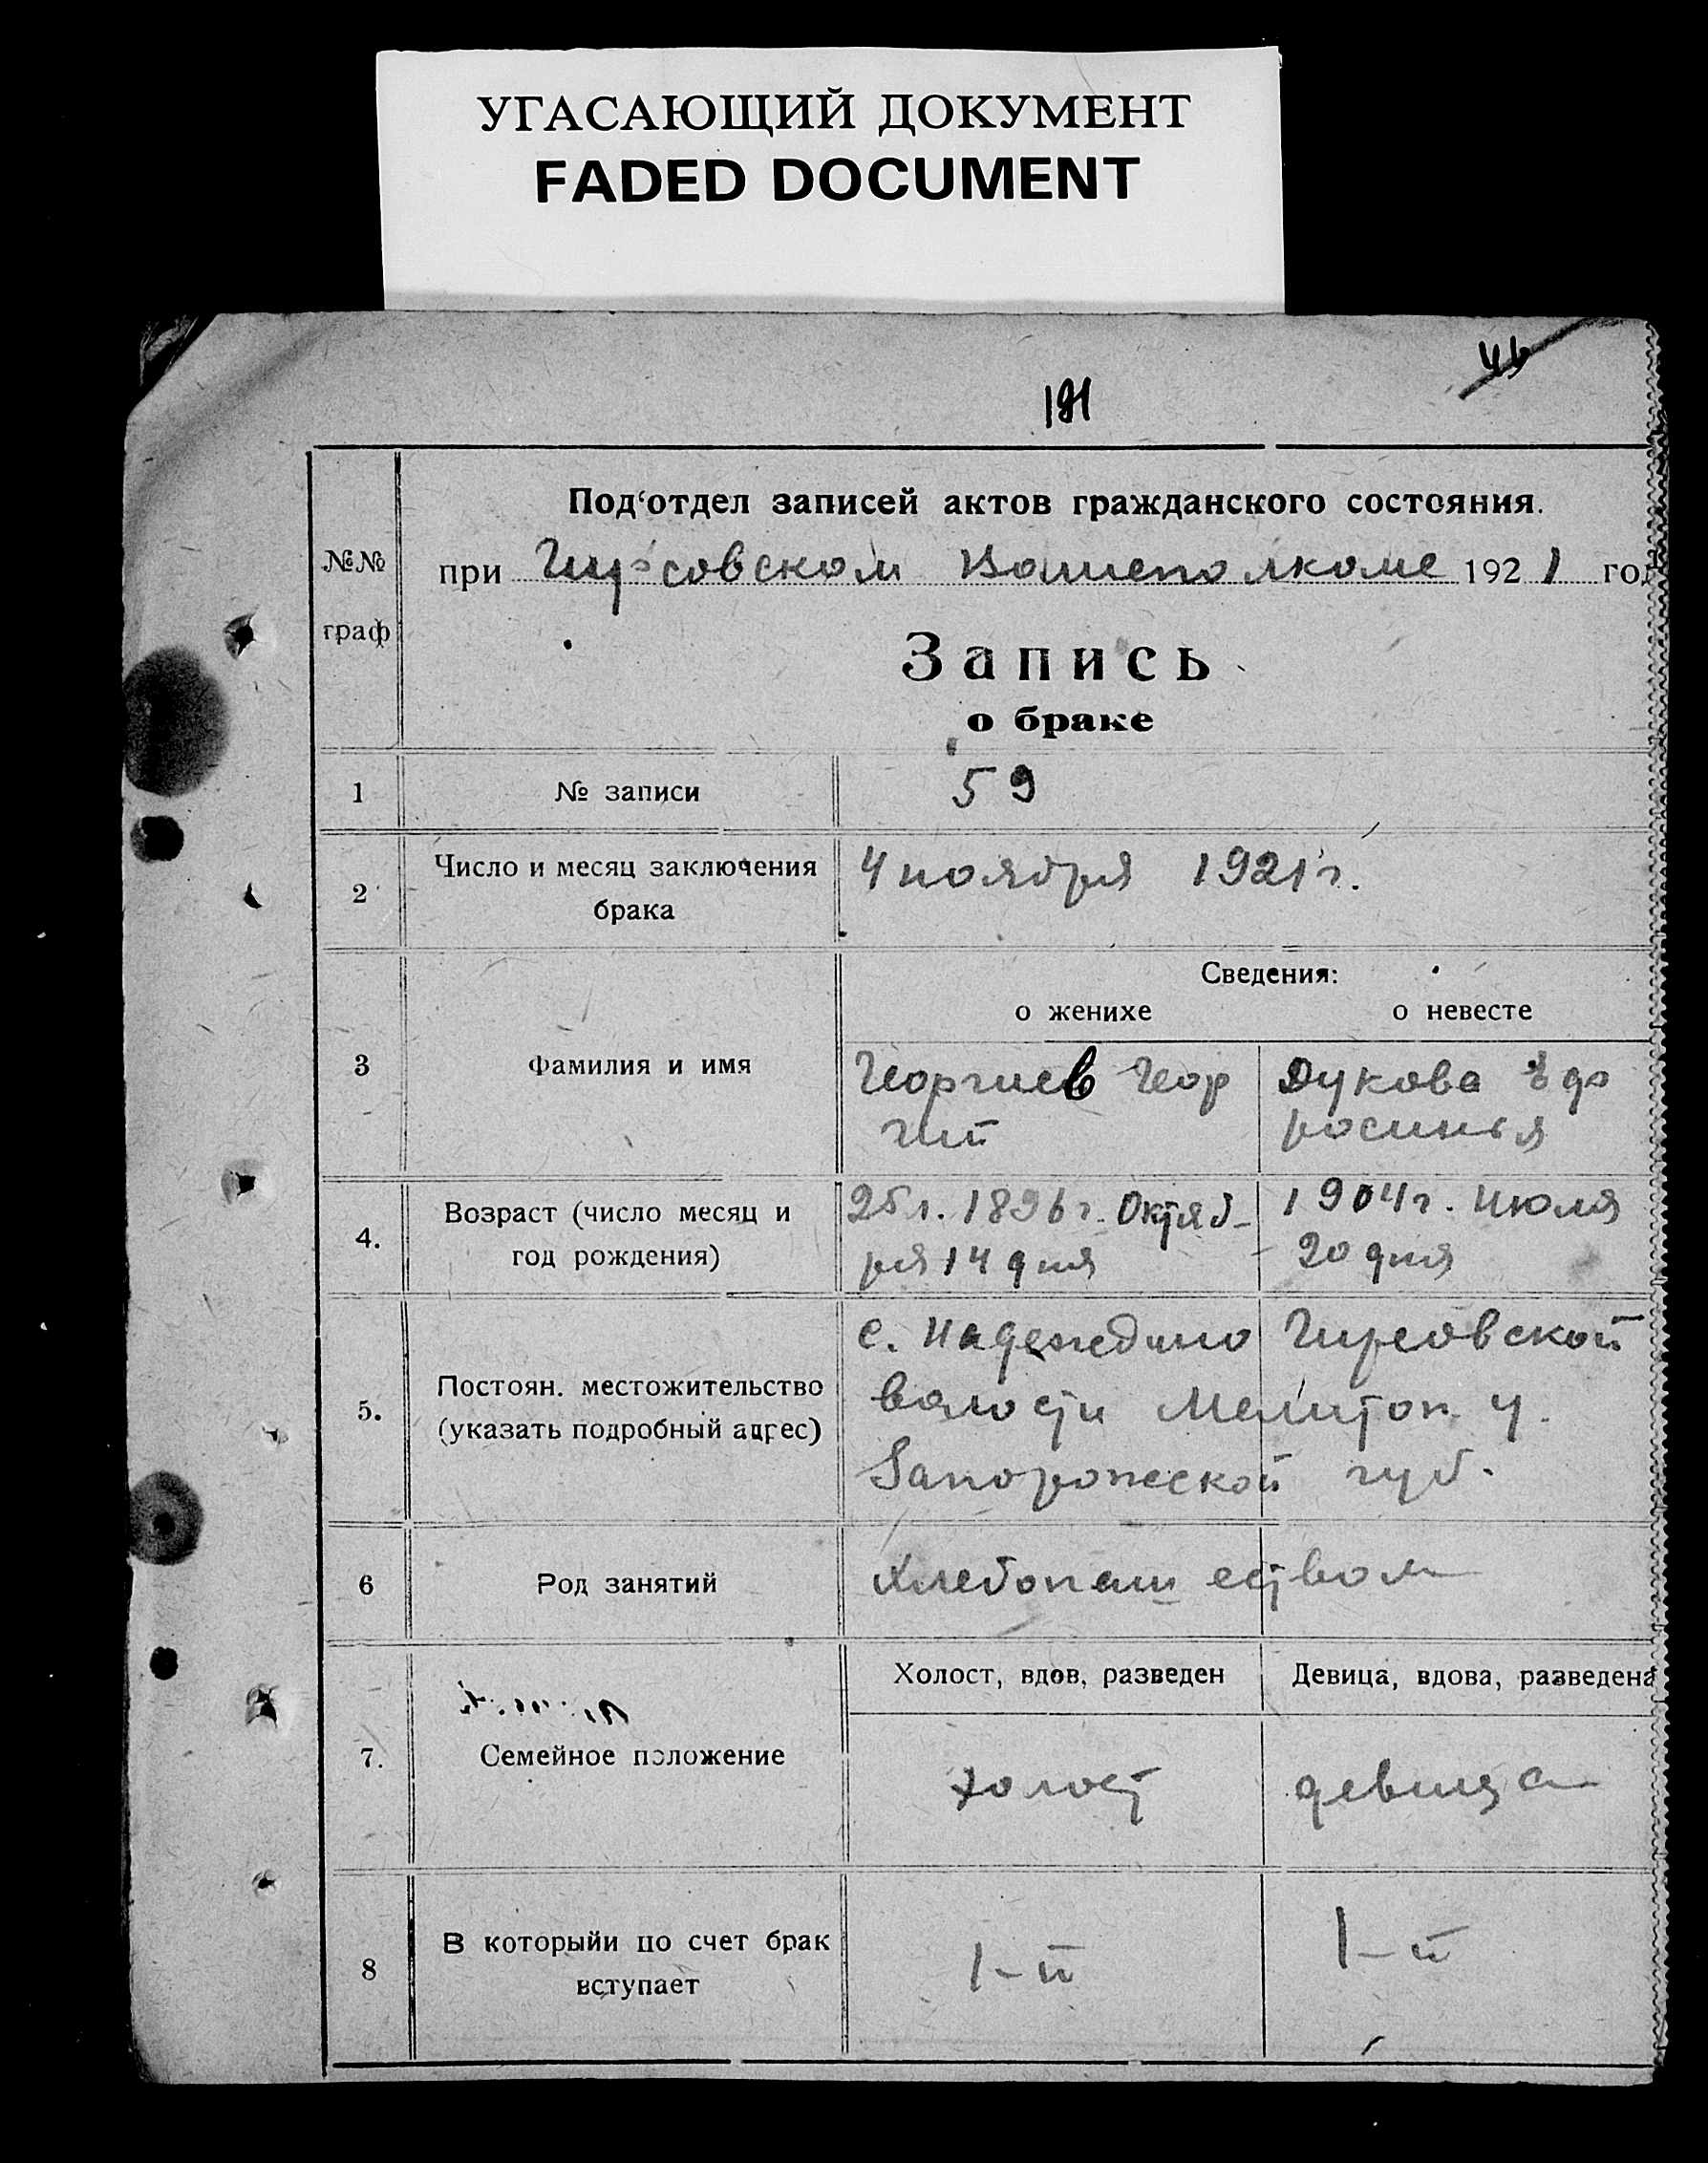 УГАСАЮЩИЙ ДОКУМЕНТ
FADED DOCUMENT
191
Под‘отдел записей актов гражданского состояния.
№№
граф
при Гирсовском Волисполкоме 1921 год
Запись
о браке
1 № записи 59
2 Число и месяц заключения
брака
4 ноября 1921 г.
Сведения:
о женихе о невесте
3 Фамилия и имя
Георгиев Геор
гий
Дукова Ефро
росинья
4. Возраст (число месяц и
год рождения)
25 л. 1896 г. Октяб-
ря 14 дня
1904 г. Июля
20 дня
5. Постоян. местожительство
(указать подробный адрес)
с. Надеждино Гирсовской
волости Мелитоп. у.
Запорожской губ.
6 Род занятий Хлебопашеством
Холост, вдов, разведен Девица, вдова, разведена
7. Семейное положение
холост девица
8 В которыйи по счет брак
вступает
1-й 1-й